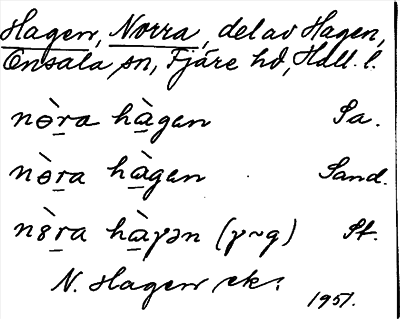 Hagen, Norra, del av Hagen,
Onsala sn, Fjäre hd, Hall. l.
nɵ̀ra hàgen Sa.
nɵ̀ra hàgen Sand.
nɞ̀ra hàγən (γ~g) St.
N. Hagen ek.
1951.